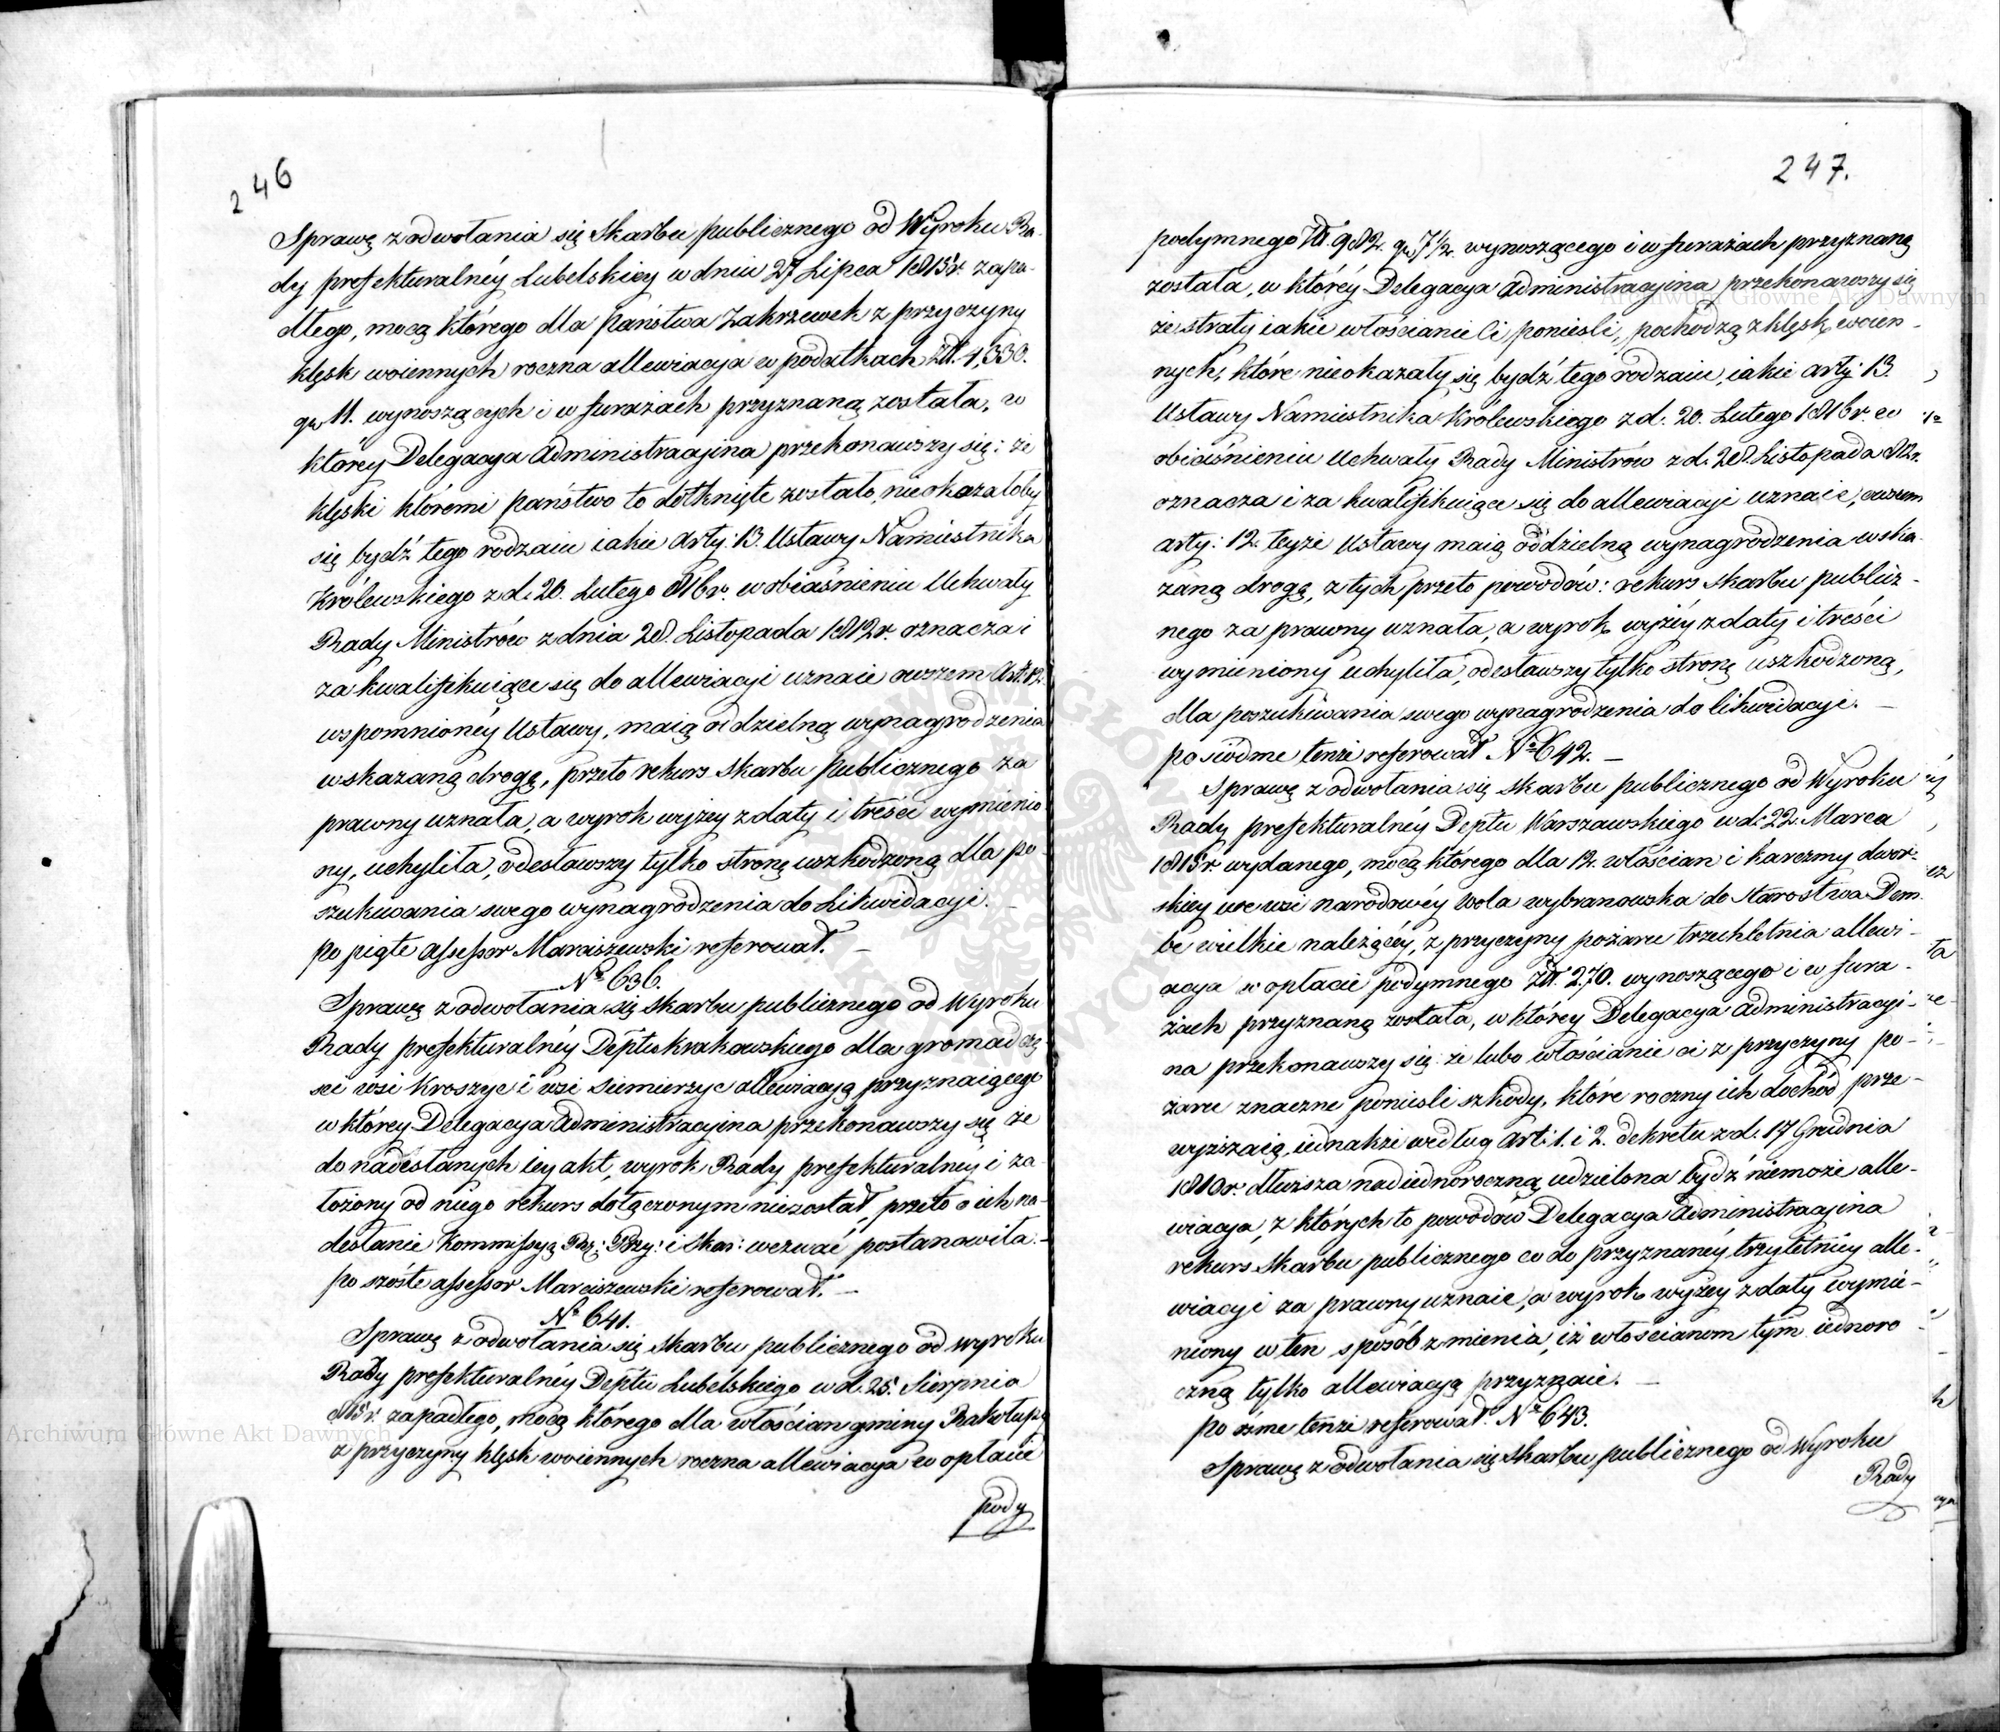 246
Sprawę z odwołania się Skarbu publicznego od Wyroku Ra-
dy prefekturalnéy Lubelskiey w dniu 27 Lipca 1815r. zapa-
dłego, mocą którego dla państwa Zakrzewek z przyczyny
klęsk woiennych roczna allewiacya w podatkach Złł. 4,330.
gr 11. wynoszących i w furażach przyznaną została, w
którey Delegacya Administracyina przekonawszy się: że
klęski któremi państwo to dotknięte zostało, nieokazałoby
się bydź tego rodzaiu iakie arty: 13. Ustawy Namiestnika
Królewskiego z d. 20. Lutego 816r. w obiaśnieniu Uchwały
Rady Ministrów z dnia 28. Listopada 1812r. oznacza i
za kwalifikuiące się do allewiacyi uznaie owszem Art: 12.
wspomnionéy Ustawy, maią oddzielną wynagrodzenia
wskazaną drogę, przeto rekurs Skarbu Publicznego za
prawny uznała, a wyrok wyżey z daty i treści wymienio-
ny, uchyliła, odesławszy tylko stronę uszkodzoną dla po-
szukiwania swego wynagrodzenia do Likwidacyi. –
po piąte Assessor Marciszewski referował. –
No 636.
Sprawę z odwołania się Skarbu publicznego od Wyroku
Rady prefekturalnéy Deptu Krakowskiego dla gromad czę
ści wsi Kroszyc i wsi Siemierzyc allewiacyą przyznaiącego
w którey Delegacya Administracyina przekonawszy się że
do nadesłanych iey akt, wyrok Rady prefekturalnéy i za-
łożony od niego rekurs dołączonym niezostał, przeto o ich na-
desłanie Kommissyą Rzą: Przy: i Skar: wezwać postanowiła. –
po szóste assessor Marciszewski referował. –
No 641.
Sprawę z odwołania się Skarbu publicznego od wyroku
Rady prefekturalnéy Deptu Lubelskiego w d. 25. Sierpnia
815r. zapadłego, mocą którego dla włościan gminy Rakołupy
z przyczyny klęsk woiennych roczna allewiacya w opłacie
pody
247.
podymnego Złł. 982. gr 7½. wynoszącego i w furażach przyznaną
została, w któréy Delegacya Administracyina przekonawszy się
że straty iakie włościanie ci ponieśli, pochodzą z klęsk woien-
nych, które nieokazały się bydź tego rodzaiu, iakie arty: 13.
Ustawy Namiestnika Królewskiego z d. 20. Lutego 1816r. w
obiaśnieniu Uchwały Rady Ministrów z d. 28. Listopada 812r.
oznacza i za kwalifikuiące się do allewiacyi uznaie, owszem
arty: 12. teyże Ustawy maią oddzielną wynagrodzenia wska-
zaną drogę, z tych przeto powodów: rekurs Skarbu publicz-
nego za prawny uznała, a wyrok wyżéy z daty i treści
wymieniony uchyliła, odesławszy tylko stronę uszkodzoną,
dla poszukiwania swego wynagrodzenia do likwidacyi. –
po siódme tenże referował No 642. –
Sprawę z odwołania się Skarbu publicznego od Wyroku
Rady prefekturalnéy Deptu Warszawskiego w d. 22. Marca
1815r. wydanego, mocą którego dla 12. włościan i karczmy dwor-
skiey we wsi narodowéy Wola wybranowska do Starostwa Dem
be wielkie należącéy, z przyczyny pożaru trzechletnia allewi-
acya w opłacie podymnego Złł. 270. wynoszącego i w fura-
żach przyznaną została, w którey Delegacya Administracyi-
na przekonawszy się: że lubo włościanie ci z przyczyny po-
żaru znaczne ponieśli szkody, które roczny ich dochód prze-
wyższaią, iednakże według art: 1. i 2. dekretu z d. 17 Grudnia
1810r. dłuższa nad iednoroczną udzielona bydź niemoże alle-
wiacya, z których to powodów Delegacya Administracyina
rekurs Skarbu publicznego co do przyznanéy trzyletniey alle-
wiacyi za prawny uznaie, a wyrok wyżey z daty wymie-
niony w ten sposób zmienia, iż włościanom tym iednoro
czną tylko allewiacyą przyznaie. –
po ósme tenże referował. No 643.
Sprawę z odwołania się Skarbu publicznego od Wyroku
Rady
Archiwum Główne Akt Dawnych
Archiwum Główne Akt Dawnych